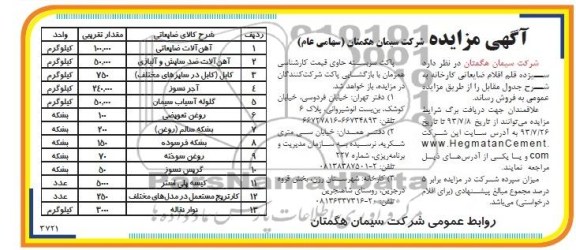 آگهی مزایده شرکت سیمان هگمتان (سهامی عام)
شرکت سیمان هگمتان در نظر دارد
سیزده قلم اقلام ضایعاتی کارخانه به
شرح جدول مقابل را از طریق مزایده
عمومی به فروش رساند.
علاقمندان جهت دریافت برگ شرایط
مزایده می‌توانند از تاریخ ۹۳/۷/۸ تا تاریخ
۹۳/۷/۲۶ به آدرس سایت این شرکت
www.HegmatanCement.
com و یا یکی از آدرس‌های ذیل
مراجعه نمایند.
میزان سپرده شرکت در مزایده برابر ۵
درصد مجموع مبالغ پیشنهادی (برای اقلام
درخواستی) می‌باشد.
پاکت سربسته حاوی قیمت کارشناسی
همزمان با بازگشایی پاکت شرکت‌کنندگان
در مزایده، باز خواهد شد.
۱) دفتر تهران: خیابان فردوسی، خیابان
کوشک، بن‌بست انوشیروانی، پلاک ۶
تلفن: ۶۶۷۳۴۸۹۳-۶۶۷۲۷۸۱۶
۲) دفتر همدان: خیابان سی متری
شکریه، نرسیده به سازمان مدیریت و
برنامه‌ریزی، شماره ۲۲۷
تلفن: ۰۸۱۳۸۳۸۷۵۰۱-۲
۳) کارخانه: شهرستان رزن، بخش قروه
درجزین، روستای شاهنجرین
تلفن: ۷-۰۸۱۳۶۳۳۷۳۱۶۲۰۰
روابط عمومی شرکت سیمان هگمتان
ردیف شرح کالای ضایعاتی مقدار تقریبی واحد
۱ آهن آلات ضایعاتی ۱۰۰,۰۰۰ کیلوگرم
۲ آهن آلات ضد سایش و آلیاژی ۵۰,۰۰۰ کیلوگرم
۳ کابل (کابل در سایزهای مختلف) ۷۵۰ کیلوگرم
۴ آجر نسوز ۲۴۰,۰۰۰ کیلوگرم
۵ گلوله آسیاب سیمان ۵۰,۰۰۰ کیلوگرم
۶ روغن تعویضی ۱۰۰ بشکه
۷ بشکه سالم (روغن) ۲۰۰ بشکه
۸ بشکه فرسوده ۱۵۰ بشکه
۹ روغن سوخته ۷۰ بشکه
۱۰ گریس نسوز ۵۰ بشکه
۱۱ کیسه پلی استر ۵۰۰۰ عدد
۱۲ کارتریج مستعمل در مدل‌های مختلف ۲۵۰ عدد
۱۳ نوار نقاله ۳۰۰۰ کیلوگرم
۳۷۲۱